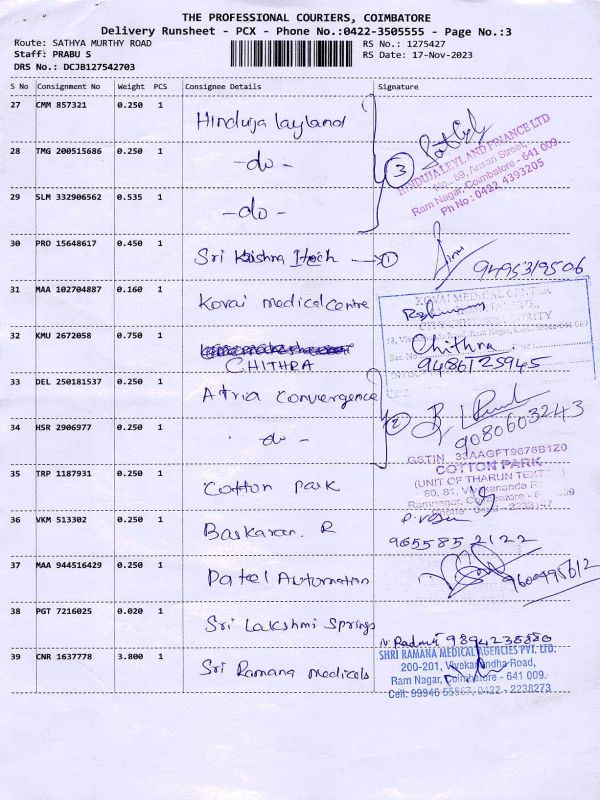 THE PROFESSIONAL COURIERS, COIMBATORE
Delivery Runsheet - PCX - Phone No.:0422-3505555 - Page No.:3
Route: SATHYA MURTHY ROAD
Staff: PRABU S
DRS No.: DCJB127542703
RS No.: 1275427
RS Date: 17-Nov-2023
S No Consignment No Weight PCS Consignee Details Signature
27 CMM 857321 0.250 1 Hinduja layland
28 TMG 200515686 0.250 1 -do-
29 SLM 332906562 0.535 1 -do-
3
HINDUJA LEYLAND FINANCE LTD
No., 69, Ansari Street,
Ram Nagar, Coimbatore - 641 009.
Ph No : 0422 4393205
30 PRO 15648617 0.450 1 Sri Krishna Itech 1
9495319506
31 MAA 102704887 0.160 1 Kovai medical centre
KOVAI MEDICAL CENTER
32 KMU 2672058 0.750 1 CHITHRA
Chithra
9486125945
33 DEL 250181537 0.250 1 Atria Convergence
34 HSR 2906977 0.250 1 -do-
2
9080603243
35 TRP 1187931 0.250 1 Cotton park
GSTIN 33AAGFT9676B1Z0
COTTON PARK
(UNIT OF THARUN
80, 81, Vivekananda
Ramnagar, Coimbatore -
36 VKM 513302 0.250 1 Baskaran. R
9655852122
37 MAA 944516429 0.250 1 Patel Automation
9600495612
38 PGT 7216025 0.020 1 Sri Lakshmi Springs
9894238880
39 CNR 1637778 3.800 1 Sri Ramana medicals
SHRI RAMANA MEDICAL AGENCIES PVT. LTD.
200-201, Vivekanandha Road,
Ram Nagar, Coimbatore - 641 009.
Cell: 99946 55567, 0422 - 2238273